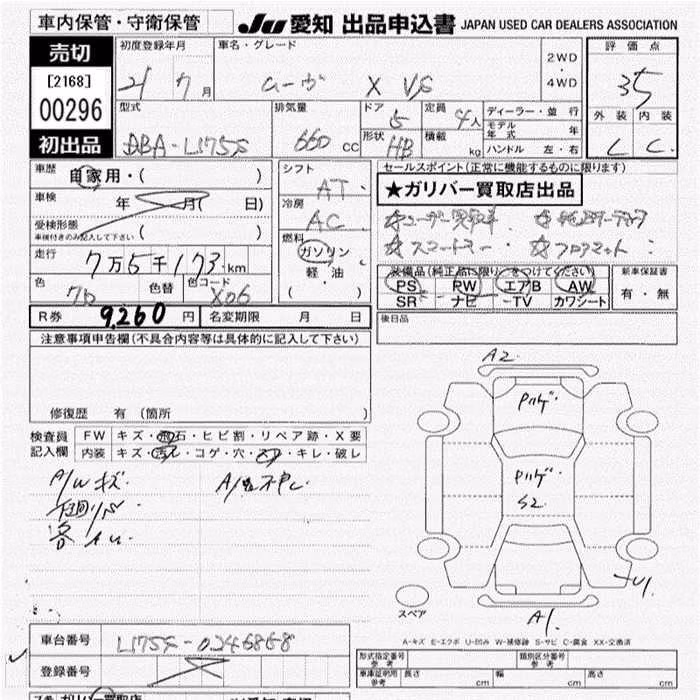 車内保管・守衛保管
JU 愛知 出品申込書 JAPAN USED CAR DEALERS ASSOCIATION
売切
[2168]
00296
初出品
初度登録年月 車名・グレード 2WD・4WD 評価点
21 7月 ムーヴ X VS 3.5
型式 排気量 ドア 定員 ディーラー・並行 外装 内装
DBA-L175S 660cc 5 4人 モデル年式 年 C C
形状 HB 積載 kg ハンドル 左・右
車歴 自家用・( )
シフト AT
セールスポイント(正常に機能するものに限ります)
★ガリバー買取店出品
車検 年 月( 日)
冷房 AC
受検形態 ( )
車検付きのみ記入して下さい
燃料 ガソリン 軽油 ( )
走行 7万5千173km
色 色替 色コード X06
装備品(純正品に限り○をつけてください) 新車保証書
PS PW エアB AW 有・無
SR ナビ TV カワシート
R券 9,260円 名変期限 月 日
後日品
注意事項申告欄(不具合内容等は具体的に記入して下さい)
修復歴 有 (箇所 )
検査員記入欄 FW キズ・飛石・ヒビ割・リペア跡・X要
内装 キズ・汚れ・コゲ・穴・スレ・キレ・破レ
A/W キズ
A2
S2
U1
A1
スペア
A-キズ E-エクボ U-凹み W-補修跡 S-サビ C-腐食 XX-交換済
車台番号 L175S-0246868
登録番号
形式指定番号 参考 類別区分番号 参考
車庫証明用 参考 長さ cm 幅 cm 高さ cm
ガリバー買取店